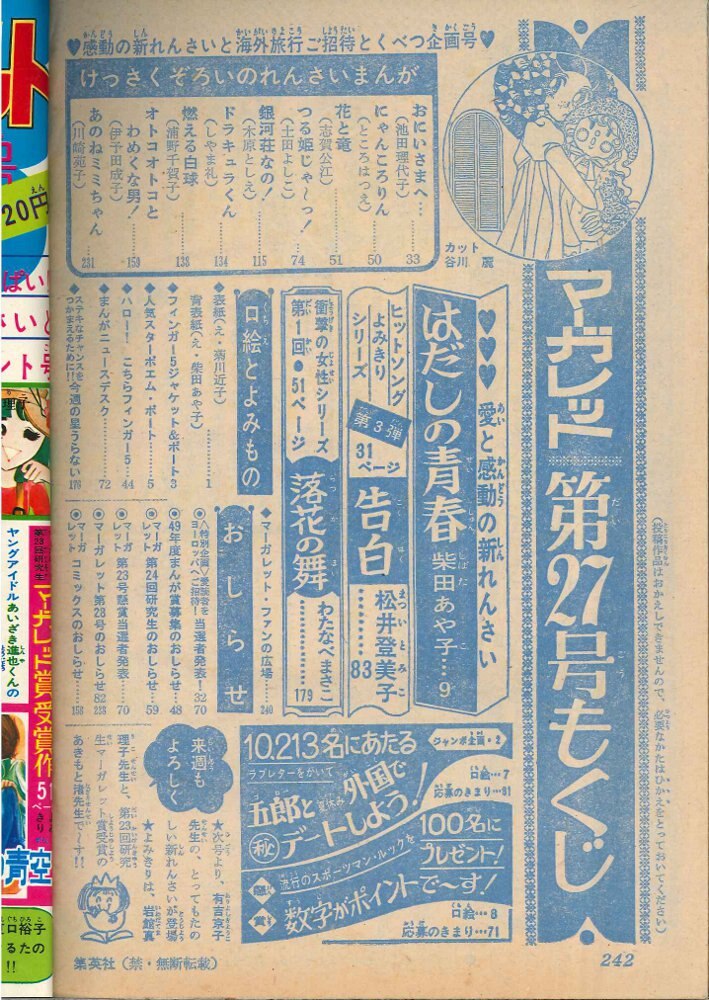 ♥感動の新れんさいと海外旅行ご招待とくべつ企画号♥
マーガレット 第27号もくじ
(投稿作品はおかえしできませんので、必要なかたはひかえをとっておいてください)
カット
谷川 麗
けっさくぞろいのれんさいまんが
おにいさまへ…(池田理代子)……33
にゃんころりん(ところはつえ)……50
花と竜(志賀公江)……51
つる姫じゃ〜っ!(土田よしこ)……74
銀河荘なの!(木原としえ)……115
ドラキュラくん(しやま礼)……134
燃える白球(浦野千賀子)……138
オトコオトコとわめくな男!(伊子田成子)……159
あのねミミちゃん(川崎苑子)……231
♥♥♥愛と感動の新れんさい
はだしの青春 柴田あや子…9
ヒットソングよみきりシリーズ
第3弾
31ページ
告白 松井登美子……83
衝撃の女性シリーズ
第1回●51ページ
落花の舞 わたなべまさこ……179
口絵とよみもの
◆表紙(え・菊川近子)……1
背表紙(え・柴田あや子)
◆フィンガー5ジャケット&ポート3
◆人気スターポエム・ポート……5
◆ハロー!こちらフィンガー5……44
◆まんがニュースデスク……72
◆ステキなチャンスをつかまえるために!!今週の星うらない178
◆マーガレット・ファンの広場……240
おしらせ
◉〈特別企画〉愛読者をヨーロッパへご招待!当選者発表!32 70
◉49年度まんが賞募集のおしらせ…48
◉マーガレット 第24回研究生のおしらせ…59
◉マーガレット 第23号懸賞当選者発表…70
◉マーガレット第28号のおしらせ82 228
◉マーガレット コミックスのおしらせ…158
10,213名にあたる
ジャンボ企画・2
ラブレターをかいて
五郎と夏休み外国で
㊙デートしよう!
口絵…7
応募のきまり…81
100名にプレゼント!
懸賞
流行のスポーツマン・ルックを
数字がポイントで〜す!
口絵…8
応募のきまり…71
来週もよろしく
★次号より、有吉京子先生の、とってもたのしい新れんさいが登場
★よみきりは、岩館真理子先生と、第23回研究生マーガレット賞受賞のあきもと渚先生で〜す!!
集英社(禁・無断転載)
242
ト
号
20円
理子
マーガレット賞受賞作
ヤングアイドルあいざき進也くんの
51ページ
青空
口裕子
るたの
!!